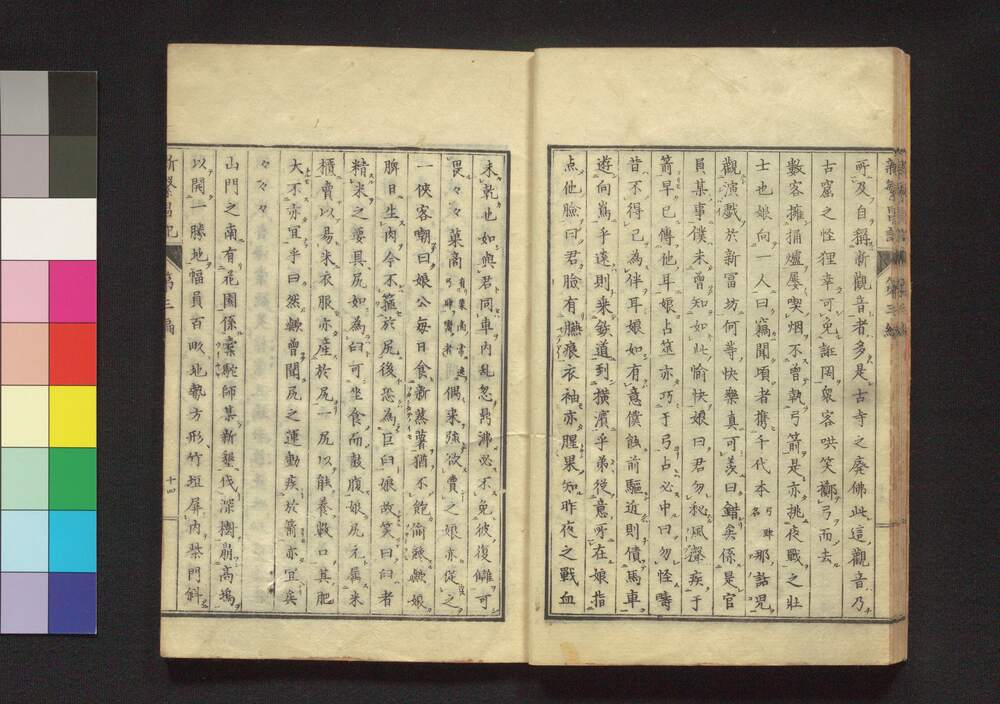 所及自稱新觀音者多是古寺之廢佛此這觀音乃
古窟之怪狸幸可免誑罔衆客哄笑擲弓而去
數客擁擁爐屡喫烟不曾執弓箭是亦挑夜戰之壯
士也娘向一人曰竊聞頃者攜千代本弓肆名那話児
觀演戲於新冨坊何等快樂真可羨曰錯矣係是官
員某事僕未曾知如此愉快娘曰君勿秘風聲疾于
箭早已傳他耳娘占筮亦巧于弓占必中曰勿怪疇
昔不得已為伴耳娘如有意僕蝕前驅近則債馬車
遊向嶌乎遠則乘鉄道到横濱乎弟從意所在娘指
点他臉曰君臉有臙痕衣袖亦腥果知昨夜之戰血
未乾也如與君同車内乱忽鼎沸必不免彼復讎可
畏々々菓商偶来強欲賣之娘亦従之
一俠客嘲曰娘公每日食新蒸薯猶不飽偷豚嫩娘
脾日生肉今不箍於尻後恐為巨臼娘故笑曰臼者
精米之要具尻如為臼可坐食而鼓腹娘尻元属米
櫃賣以易米衣服亦産於尻一尻以能養數口其肥
大不亦宜乎曰然嫩曾聞尻之運動疾於箭亦宜矣
々々々
山門之南有花園係槖駝師某新墾伐深樹崩高塢
以開一勝地幅員百畝地勢方形竹短屏内柴門斜
新繁昌記
第三編
十四